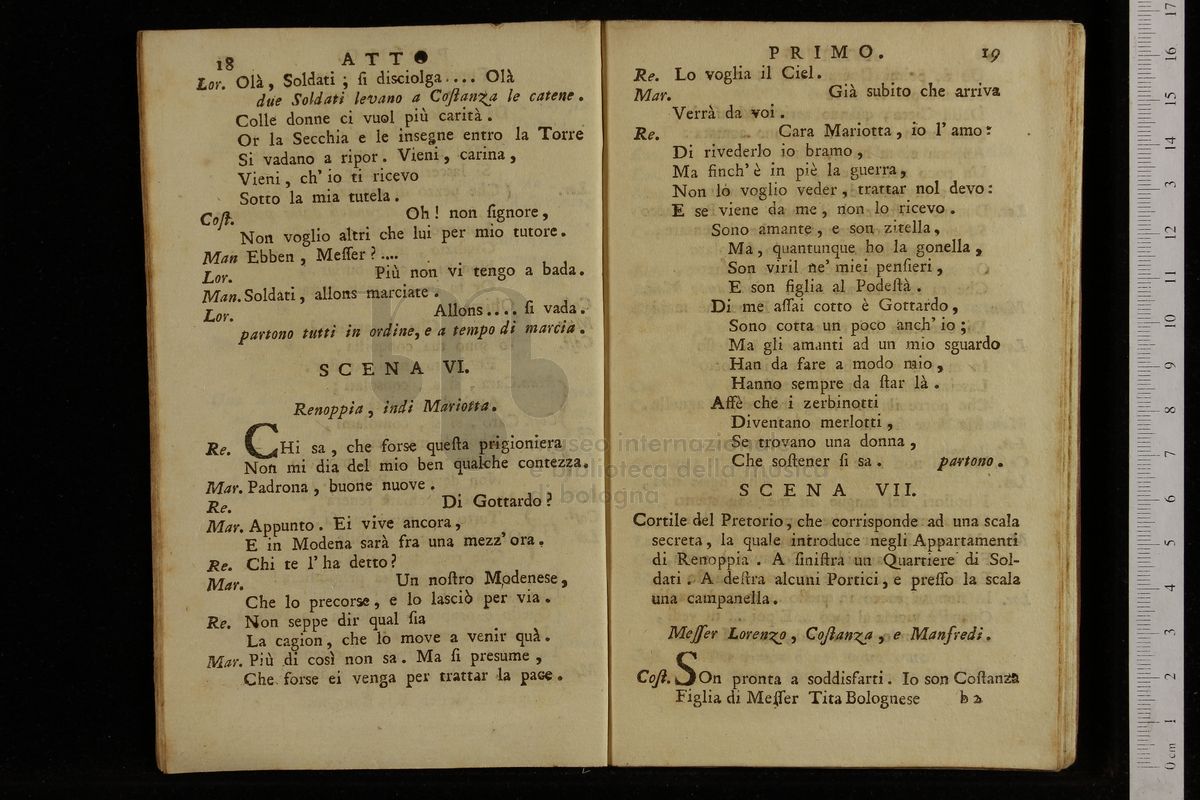 18 ATTO
Lor. Olà, Soldati; ſi diſciolga.... Olà
due Soldati levano a Coſtanza le catene.
Colle donne ci vuol più carità.
Or la Secchia e le inſegne entro la Torre
Si vadano a ripor. Vieni, carina,
Vieni, ch' io ti ricevo
Sotto la mia tutela.
Coſt. Oh! non ſignore,
Non voglio altri che lui per mio tutore.
Man Ebben, Meſſer?....
Lor. Più non vi tengo a bada.
Man. Soldati, allons marciate.
Lor. Allons.... ſi vada.
partono tutti in ordine, e a tempo di marcia.
SCENA VI.
Renoppia, indi Mariotta.
Re. CHi sa, che forse queſta prigioniera
Non mi dia del mio ben qualche contezza.
Mar. Padrona, buone nuove.
Re. Di Gottardo?
Mar. Appunto. Ei vive ancora,
E in Modena sarà fra una mezz' ora.
Re. Chi te l' ha detto?
Mar. Un noſtro Modenese,
Che lo precorse, e lo laſciò per via.
Re. Non seppe dir qual ſia
La cagion, che lo move a venir quà.
Mar. Più di così non sa. Ma ſi presume,
Che forse ei venga per trattar la pace.
PRIMO. 19
Re. Lo voglia il Ciel.
Mar. Già subito che arriva
Verrà da voi.
Re. Cara Mariotta, io l' amo:
Di rivederlo io bramo,
Ma finch' è in piè la guerra,
Non lo voglio veder, trattar nol devo:
E se viene da me, non lo ricevo.
Sono amante, e son zitella,
Ma, quantunque ho la gonella,
Son viril ne' miei penſieri,
E son figlia al Podeſtà.
Di me aſſai cotto è Gottardo,
Sono cotta un poco anch' io;
Ma gli amanti ad un mio sguardo
Han da fare a modo mio,
Hanno sempre da ſtar là.
Affè che i zerbinotti
Diventano merlotti,
Se trovano una donna,
Che soſtener ſi sa. partono.
SCENA VII.
Cortile del Pretorio, che corrisponde ad una scala
secreta, la quale introduce negli Appartamenti
di Renoppia. A ſiniſtra un Quartiere di Sol-
dati. A deſtra alcuni Portici, e preſſo la scala
una campanella.
Meſſer Lorenzo, Coſtanza, e Manfredi.
Coſt. SOn pronta a soddisfarti. Io son Coſtanza
Figlia di Meſſer Tita Bolognese b 2
museo internazionale
e biblioteca della musica
di bologna
0 cm 1 2 3 4 5 6 7 8 9 10 11 12 13 14 15 16 17